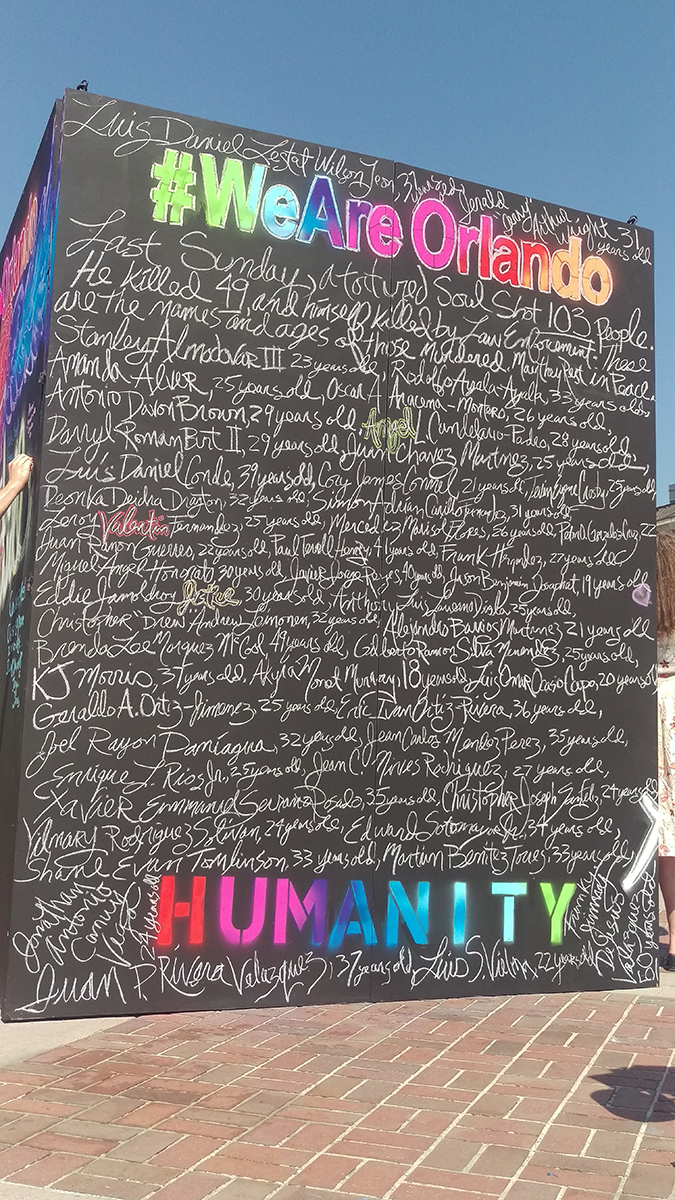 Luis Daniel Wilson Leon, 37 years old Jerald
"Gary" Arthur Wright 31
years old
#WeAre Orlando
Last Sunday, a tortured Soul Shot 103 people.
He killed 49, and himself killed by Law Enforcement. These
are the names and ages of those murdered. May they Rest in Peace.
Stanley Almodovar III 23 years old, Rodolfo Ayala-Ayala, 33 years old
Amanda Alver, 25 years old, Oscar A Aracena-Montero, 26 years old
Antonio Davon Brown 29 years old, Angel Candelario-Padro, 28 years old,
Darryl Roman Burt II, 29 years old, Juan Chavez Martinez, 25 years old,
Luis Daniel Conde, 39 years old, Cory James Connell 21 years old, Tevin Eugene Crosby, 25 years old
Deonka Deidra Drayton, 32 years old, Simon Adrian Carrillo Fernandez, 31 years old
Leroy Valentin Fernandez, 25 years old, Mercedez Marisol Flores, 26 years old, Peter Gonzalez Cruz, 22
Juan Ramon Guerrero, 22 years old, Paul Terrell Henry, 41 years old, Frank Hernandez, 27 years old
Miguel Angel Honorato, 30 years old, Javier Jorge Reyes, 40 years old, Jason Benjamin Josaphat, 19 years old
Eddie Jamoldroy Justice 30 years old, Anthony Luis Laureano Disla, 25 years old,
Christopher "Drew" Andrew Leinonen, 32 years old, Alejandro Barrios Martinez 21 years old
Brenda Lee Marquez McCool 49 years old, Gilberto Ramon Silva Menendez, 25 years old,
KJ Morris, 37 years old, Akyra Monet Murray, 18 years old Luis Omar Ocasio Capo, 20 years old
Geraldo A. Ortiz-Jimenez, 25 years old Eric Ivan Ortiz-Rivera, 36 years old,
Joel Rayon Paniagua, 32 years old, Jean Carlos Mendez Perez, 35 years old,
Enrique L. Rios Jr, 25 years old, Jean C. Nives Rodriguez, 27 years old,
Xavier Emmanuel Serrano Rosado, 35 years old, Christopher Joseph Sanfeliz, 24 years old
Yilmary Rodriguez Solivan, 24 years old, Edward Sotomayor Jr, 34 years old,
Shane Evan Tomlinson, 33 years old, Martin Benitez Torres, 33 years old
Jonathan
Antonio
Camuy
Vega
24 years old
HUMANITY
Franky
Jimmy
DeJesus
Velazquez
50 years old
Juan P. Rivera Velazquez, 37 years old, Luis S. Vielma 22 years old